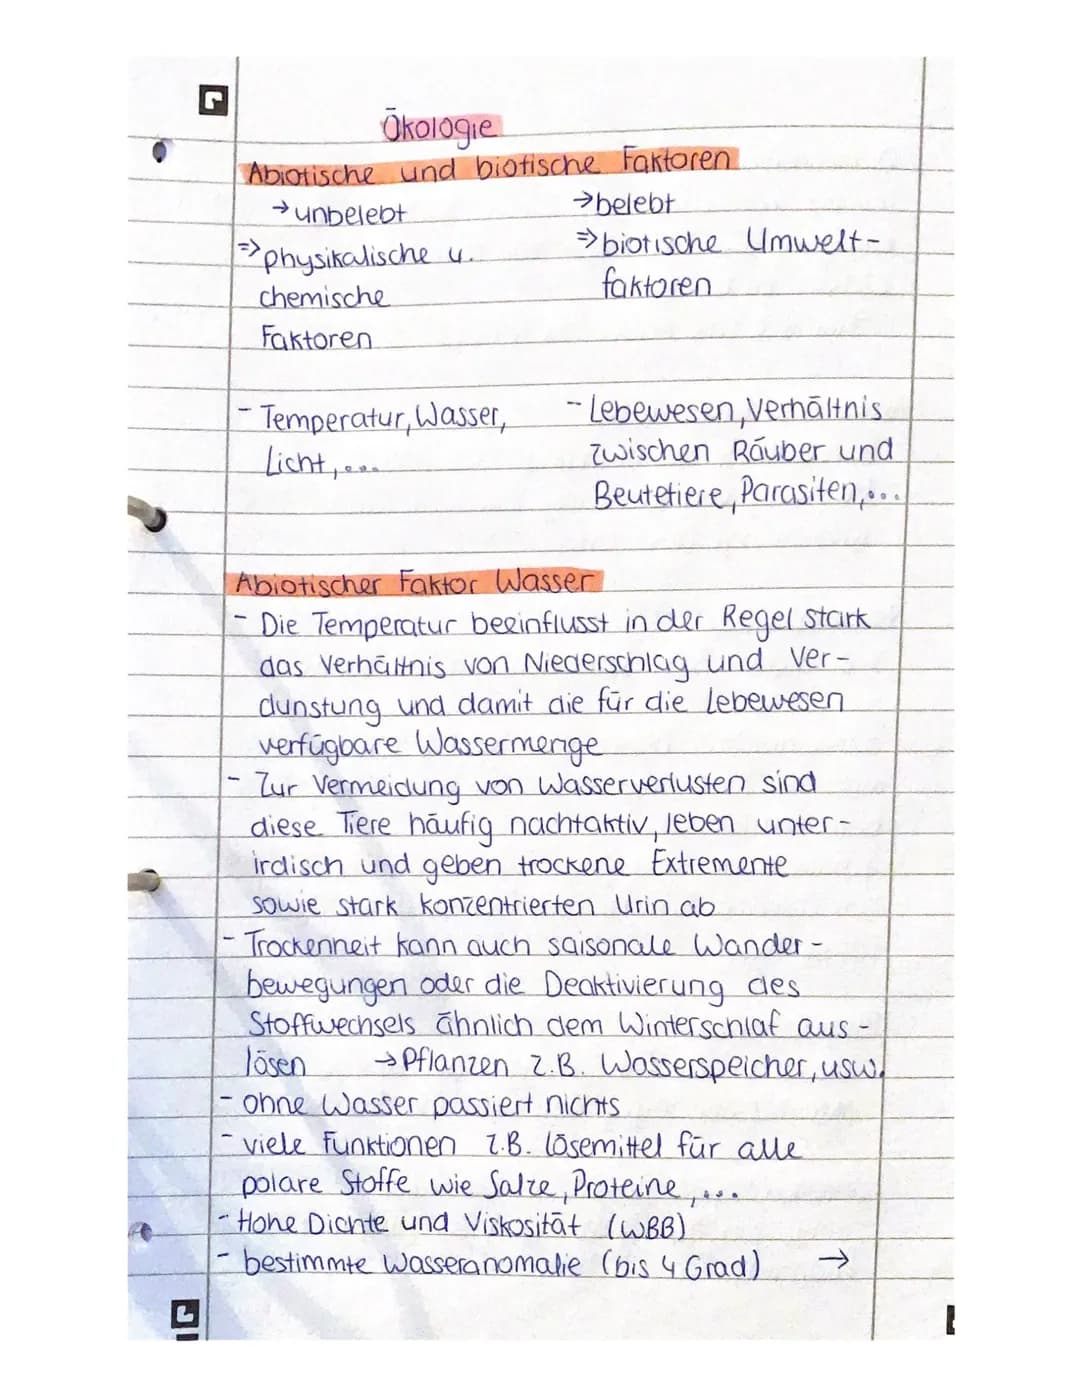 Ökologie
Abiotische und biotische Faktoren
→ unbelebt
⇒ physikalische u.
chemische
Faktoren
→ belebt
⇒ biotische Umwelt-
faktoren
- Temperatur, Wasser,
Licht,...
- Lebewesen, Verhältnis
zwischen Räuber und
Beutetiere, Parasiten,...
Abiotischer Faktor Wasser
- Die Temperatur beeinflusst in der Regel stark
das Verhältnis von Niederschlag und Ver-
dunstung und damit die für die Lebewesen
verfügbare Wassermenge
- Zur Vermeidung von Wasserverlusten sind
diese Tiere häufig nachtaktiv, leben unter-
irdisch und geben trockene Extremente
sowie stark konzentrierten Urin ab
- Trockenheit kann auch saisonale Wander-
bewegungen oder die Deaktivierung des
Stoffwechsels ähnlich dem Winterschlaf aus-
lösen → Pflanzen z.B. Wasserspeicher, usw.
- ohne Wasser passiert nichts
- viele Funktionen z.B. lösemittel für alle
polare Stoffe wie Salze, Proteine,...
- Hohe Dichte und Viskosität (WBB)
- bestimmte Wasseranomalie (bis 4 Grad) →